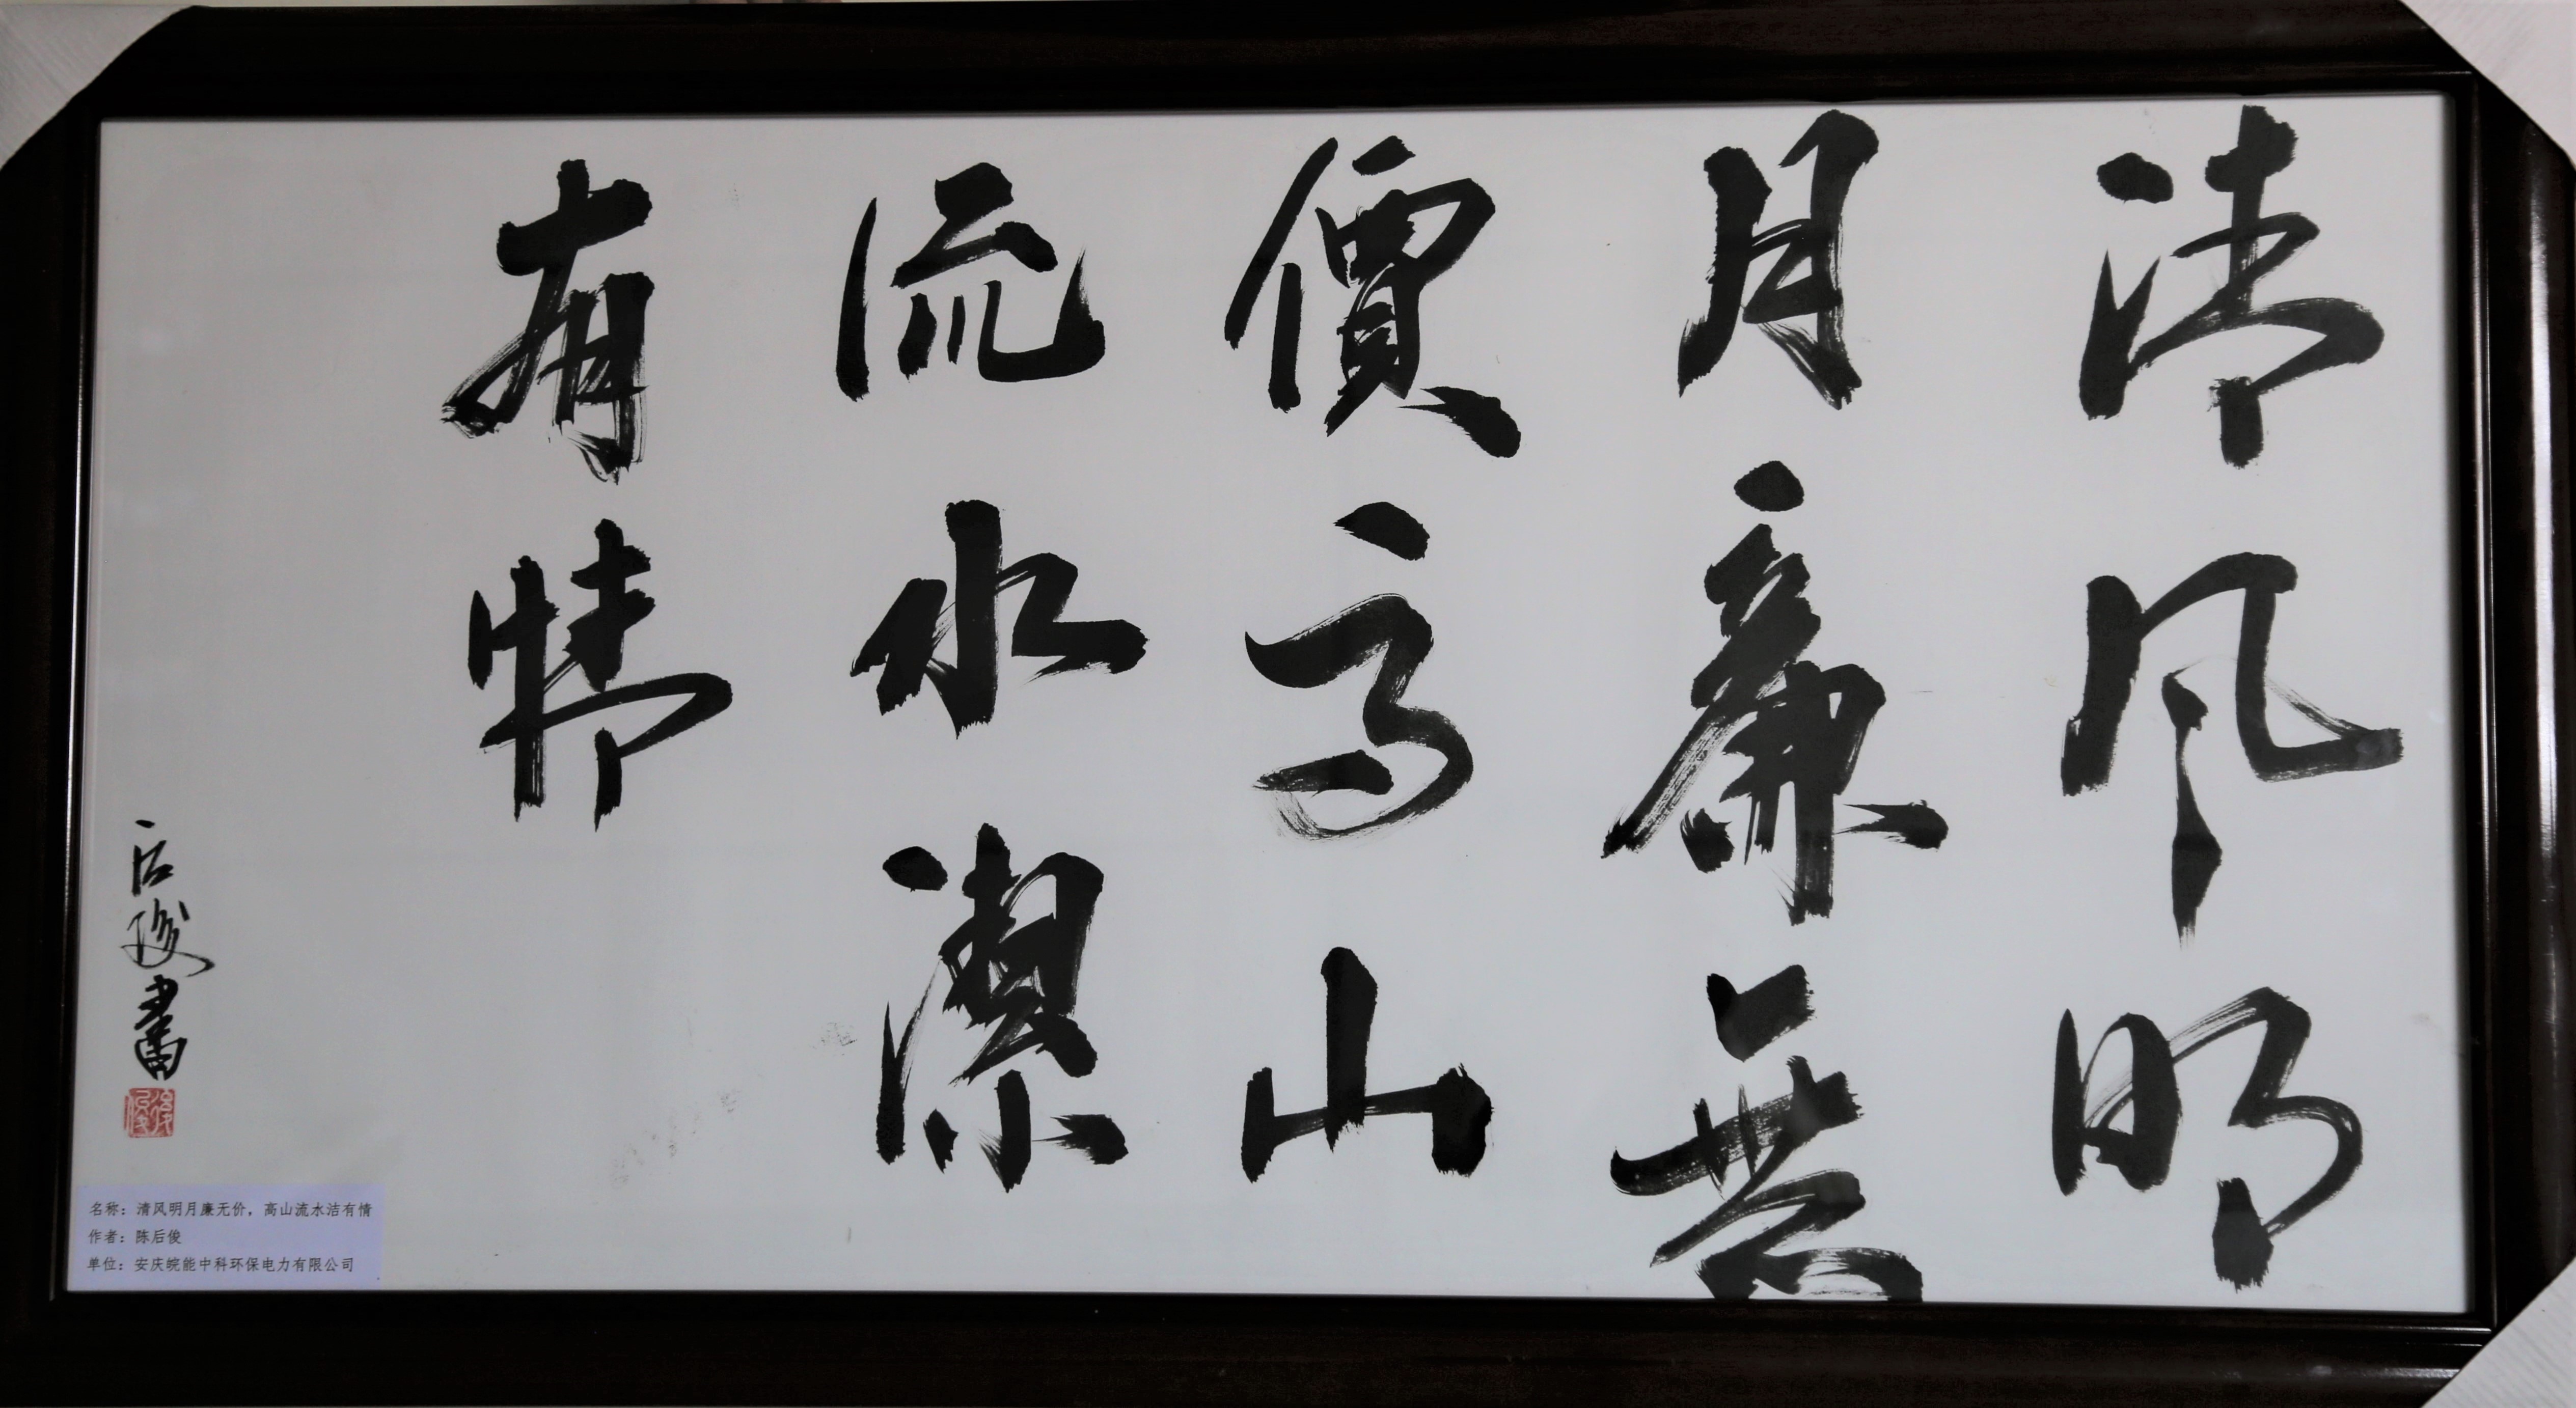 清风明
月廉無
價高山
流水潔
有情
后俊書
名称：清风明月廉无价，高山流水洁有情
作者：陈后俊
单位：安庆皖能中科环保电力有限公司